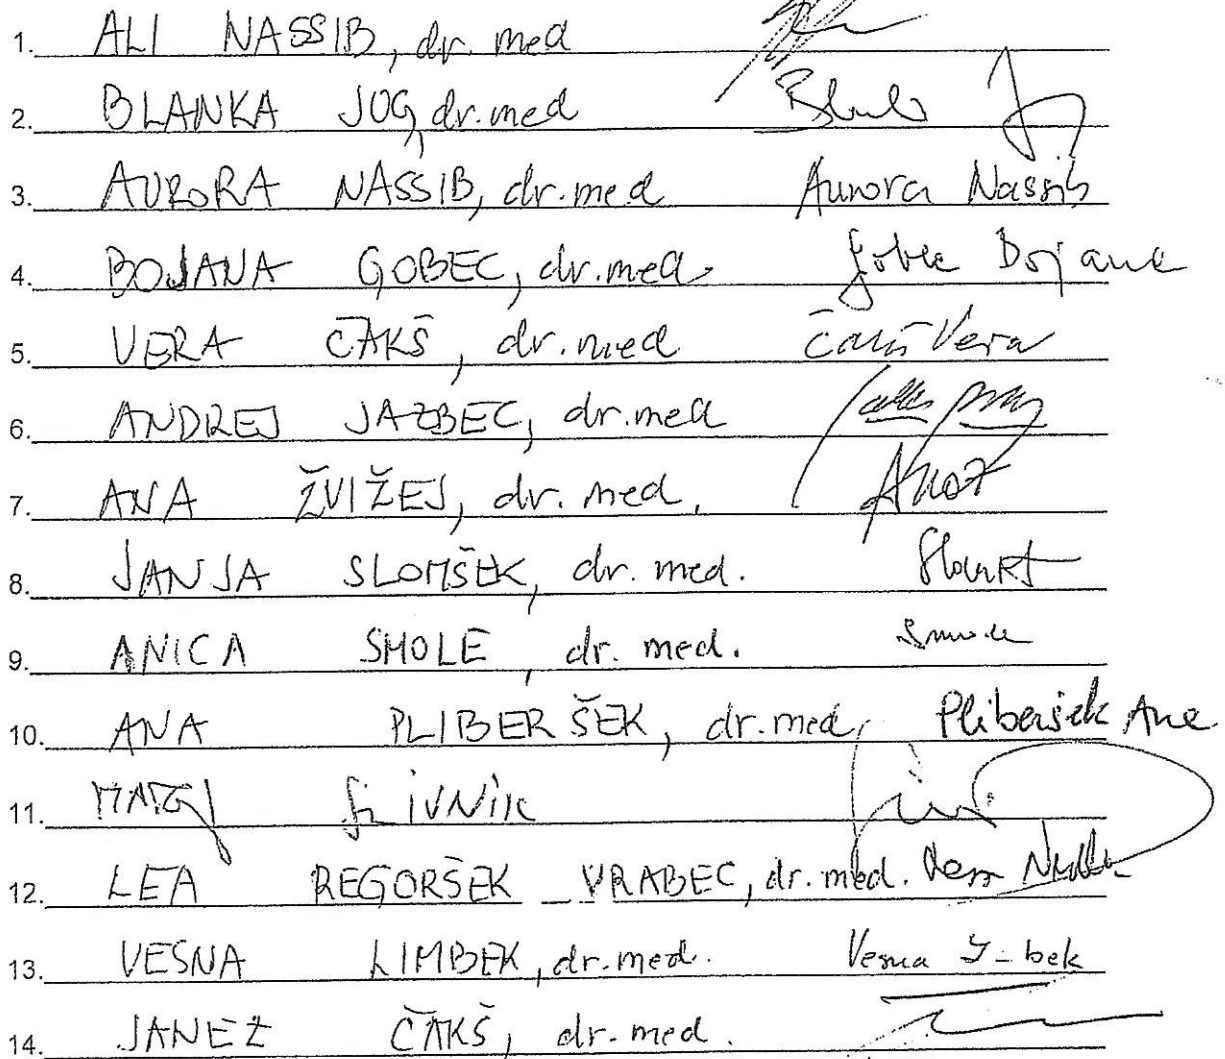 1. ALI NASSIB, dr. med
2. BLANKA JUG, dr. med
3. AURORA NASSIB, dr. med Aurora Nassib
4. BOJANA GOBEC, dr. med. Gobec Bojana
5. VERA ČAKŠ, dr. med Čakš Vera
6. ANDREJ JAZBEC, dr. med
7. ANA ŽVIŽEJ, dr. med.
8. JANJA SLOMŠEK, dr. med.
9. ANICA SMOLE, dr. med. Smole
10. ANA PLIBERŠEK, dr. med, Pliberšek Ana
11. MATEJ SLIVNIK
12. LEA REGORŠEK VRABEC, dr. med.
13. VESNA LIMBEK, dr. med. Vesna
14. JANEZ ČAKŠ, dr. med.